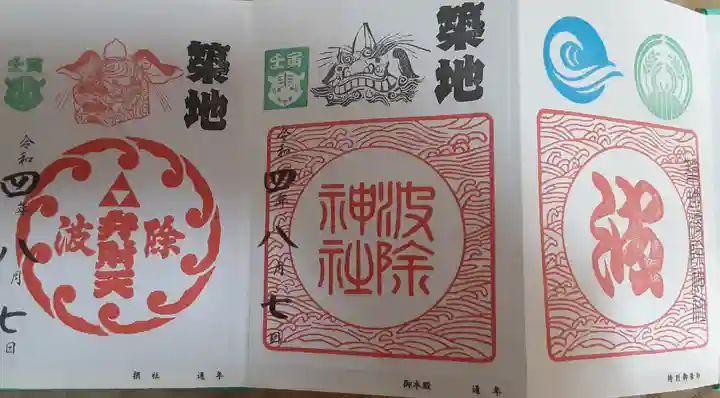 築地
壬寅
令和
四年
八月
七日
波除
弁財天
摂社 通年
築地
壬寅
令和
四年
八月
七日
波除
神社
御本殿 通年
特別御朱印